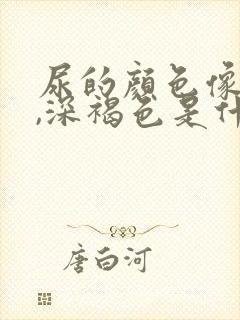 尿的顏色像
,深褐色是什
唐白河